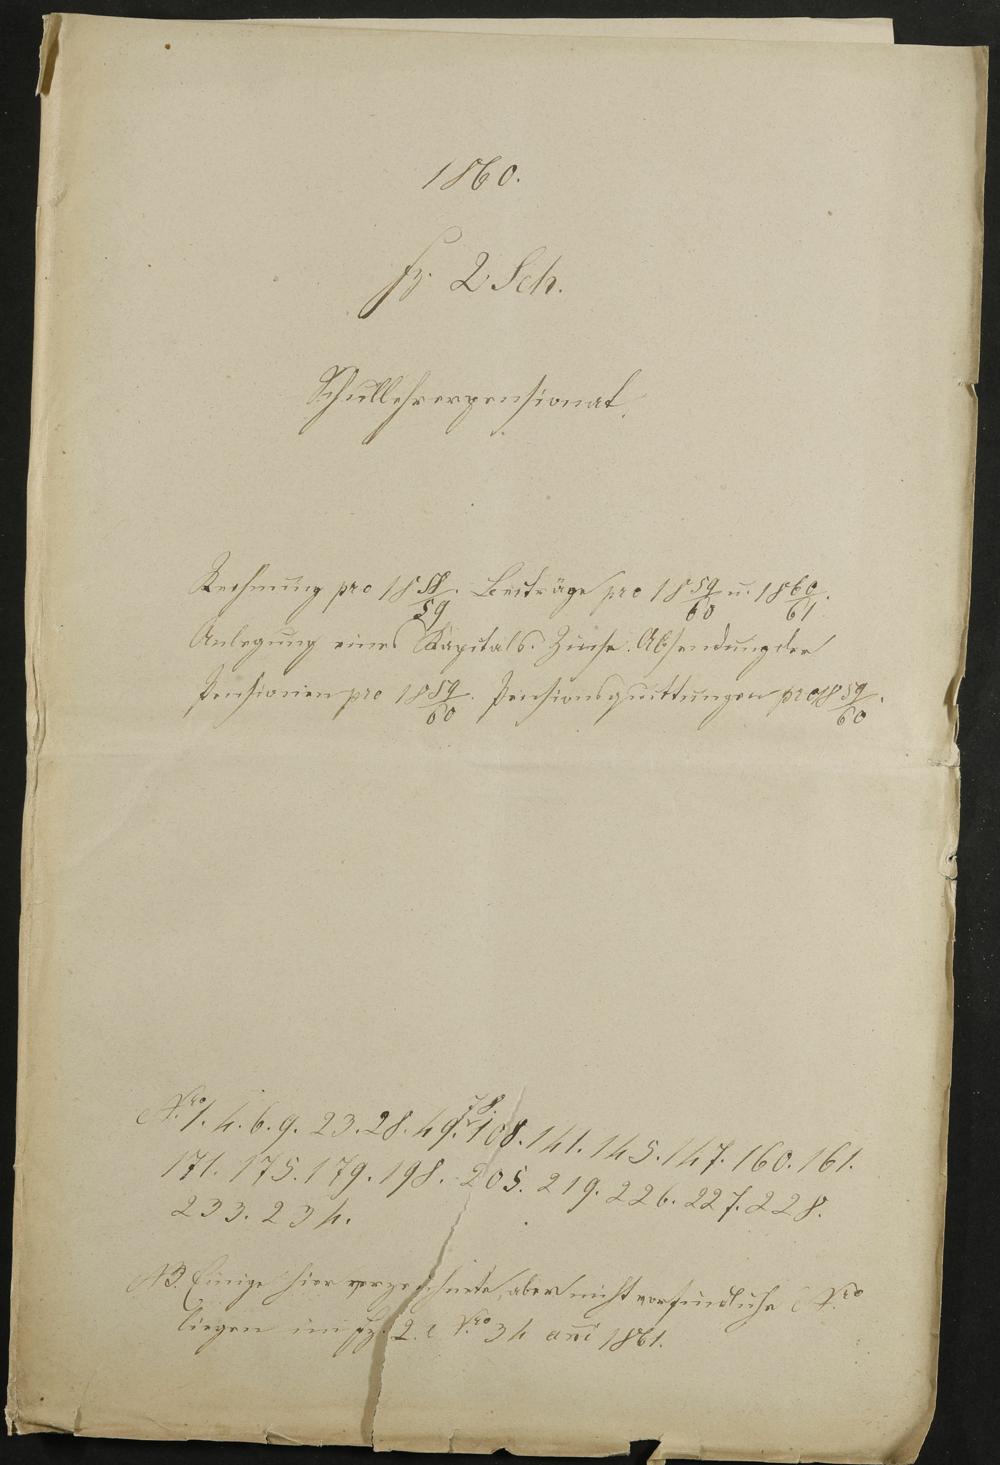 1860.
Fz. 2 Sch.
Schullehrerpensionat.
Rechnung pro 1858/59. Beiträge pro 1859/60 u. 1860/61.
Anlegung eines Kapitals. Zinse. Absendung der
Pensionen pro 1859/60. Pensionsquittungen pro 1859/60.
Nro 1. 4. 6. 9. 23. 28. 49. 78. 108. 141. 145. 147. 160. 161.
171. 175. 179. 198. 205. 219. 226. 227. 228.
233. 234.
NB. Einige hier verzeichnete, aber nicht vorfindliche Nro
liegen im Fz. 2. Nro 34 ani 1861.